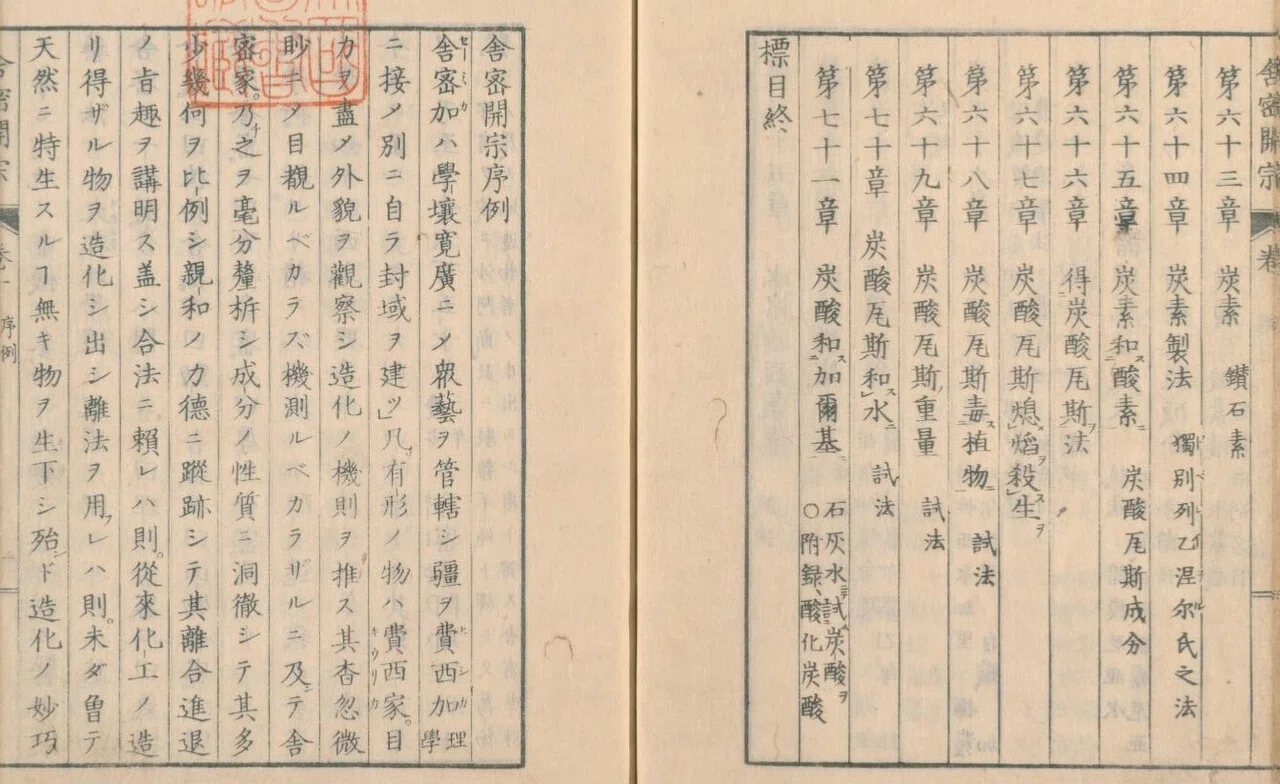 舎密開宗 卷
第六十三章 炭素 鑽石素
第六十四章 炭素製法 獨別列乙涅尓氏之法
第六十五章 炭素和酸素 炭酸瓦斯成分
第六十六章 得炭酸瓦斯法
第六十七章 炭酸瓦斯熄焔殺生
第六十八章 炭酸瓦斯毒植物 試法
第六十九章 炭酸瓦斯重量 試法
第七十章 炭酸瓦斯和水 試法
第七十一章 炭酸和加爾基 石灰水試炭酸ヲ
○附録、酸化炭酸
標目終、
舎密開宗序例
舎密加ハ學壤寛廣ニノ衆藝ヲ管轄シ疆ヲ費西加理學
ニ接ノ別ニ自ラ封域ヲ建ツ」凡有形ノ物ハ費西家。目
力ヲ盡ノ外貌ヲ觀察シ造化ノ機則ヲ推ス其杳忽微
眇キノ目覩ルベカラズ、機測ルベカラザルニ及テ舎
密家。乃之ヲ毫分釐析シ成分ノ性質ニ洞徹シテ其多
少幾何ヲ比例シ親和ノ力德ニ蹤跡シテ其離合進退
ノ旨趣ヲ講明ス盖シ合法ニ賴レハ則。從來化工ノ造
リ得ザル物ヲ造化シ出シ離法ヲ用フレハ則。未ダ曾テ
天然ニ特生スルヿ無キ物ヲ生下シ殆ド造化ノ妙巧
舎密開宗 卷一 序例